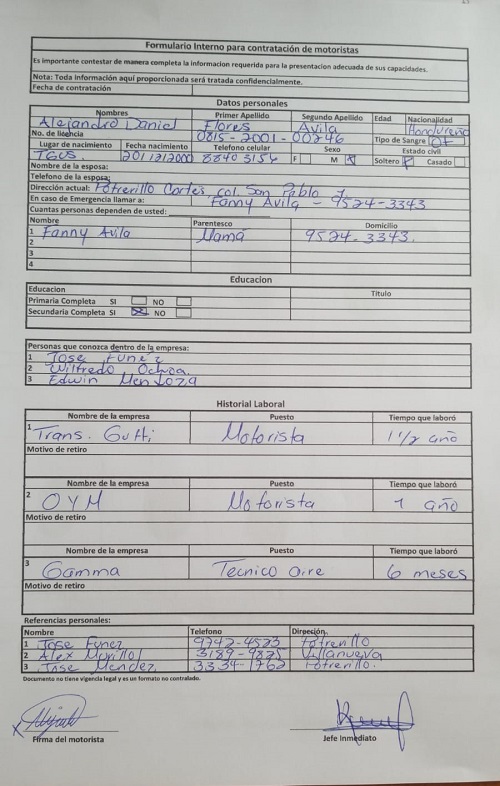 Formulario Interno para contratación de motoristas
Es importante contestar de manera completa la informacion requerida para la presentacion adecuada de sus capacidades.
Nota: Toda información aquí proporcionada será tratada confidencialmente.
Fecha de contratación
Datos personales
Nombres Primer Apellido Segundo Apellido Edad Nacionalidad
Alejandro Daniel Flores Avila Hondureño
No. de licencia 0815-2001-00246 Tipo de Sangre O+
Lugar de nacimiento Fecha nacimiento Telefono celular Sexo Estado civil
TGUS. 20/12/2000 8840 3156 F M Soltero Casado
Nombre de la esposa:
Telefono de la esposa:
Dirección actual: Potrerillo Cortes col. San Pablo
En caso de Emergencia llamar a: Fanny Avila - 9524-3343
Cuantas personas dependen de usted:
Nombre Parentesco Domicilio
1 Fanny Avila Mamá 9524-3343.
2
3
4
Educacion
Educacion Titulo
Primaria Completa SI NO
Secundaria Completa SI NO
Personas que conozca dentro de la empresa:
1 Jose Funez
2 Wilfredo Ochoa.
3 Edwin Mendoza
Historial Laboral
Nombre de la empresa Puesto Tiempo que laboró
1 Trans. Motorista 1 1/2 año
Motivo de retiro
Nombre de la empresa Puesto Tiempo que laboró
2 O Y M Motorista 1 año
Motivo de retiro
Nombre de la empresa Puesto Tiempo que laboró
3 Gamma Tecnico aire 6 meses
Motivo de retiro
Referencias personales:
Nombre Telefono Dirección
1 Jose Funez Potrerillo
2 Alex Murillo 3189-9825 Villanueva
3 Jose Mendez 3334-1762 Potrerillo.
Documento no tiene vigencia legal y es un formato no contralado.
Firma del motorista Jefe Inmediato